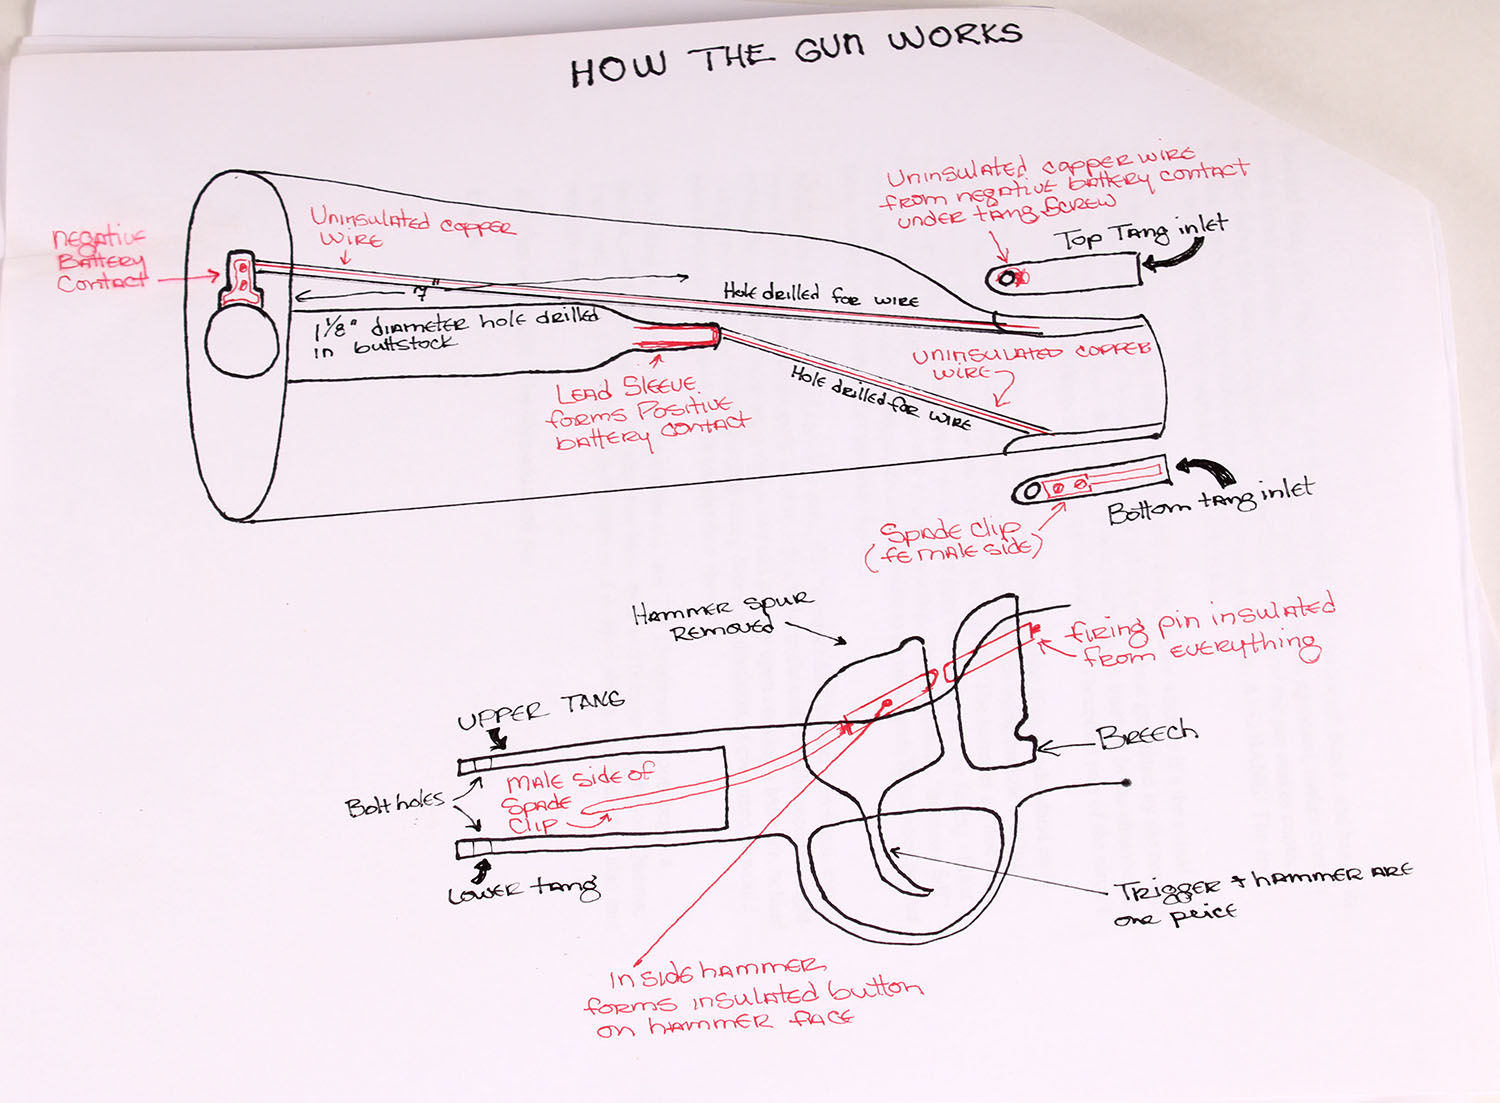 HOW THE GUN WORKS
Uninsulated copper wire
from negative battery contact
under tang screw
Top Tang inlet
negative
Battery
Contact
Uninsulated copper
wire
7"
Hole drilled for wire
1 1/8" diameter hole drilled
in buttstock
Lead Sleeve
forms Positive
battery contact
Uninsulated copper
wire
Hole drilled for wire
Bottom tang inlet
Spade clip
(female side)
Hammer spur
removed
firing pin insulated
from everything
Upper Tang
Breech
Bolt holes
male side of
Spade
Clip
Lower tang
Trigger + hammer are
one peice
Inside hammer
forms insulated button
on hammer face